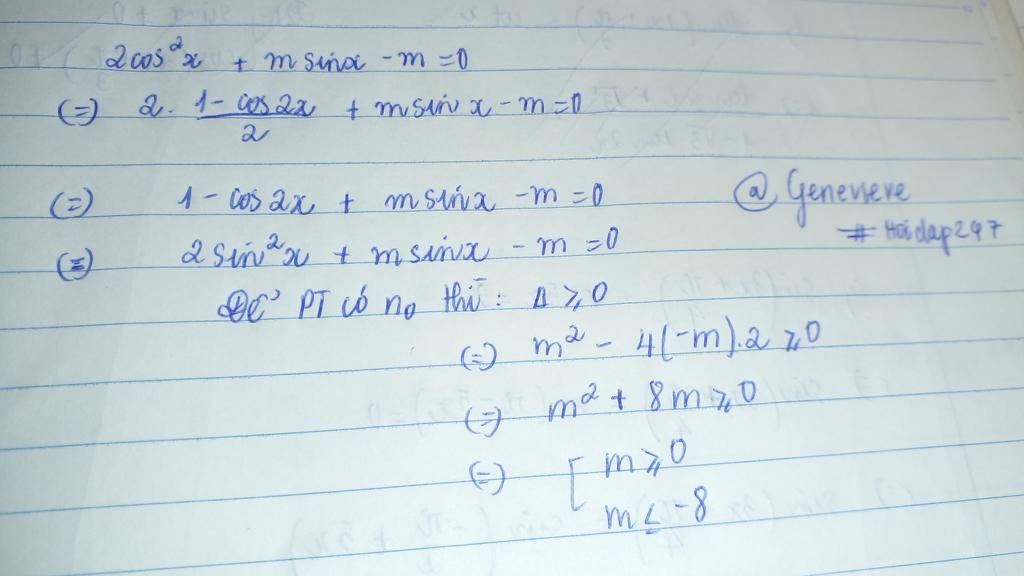 2cos²x + m sinx - m = 0
(=) 2. (1 - cos2x)/2 + m sin x - m = 0
(=) 1 - cos2x + m sinx - m = 0
@ Genevieve
# Hoidap247
(=) 2 sin²x + m sinx - m = 0
Để PT có no thì : Δ ⩾ 0
(=) m² - 4(-m).2 ⩾ 0
(=) m² + 8m ⩾ 0
(=) [ m ⩾ 0
m ≤ -8